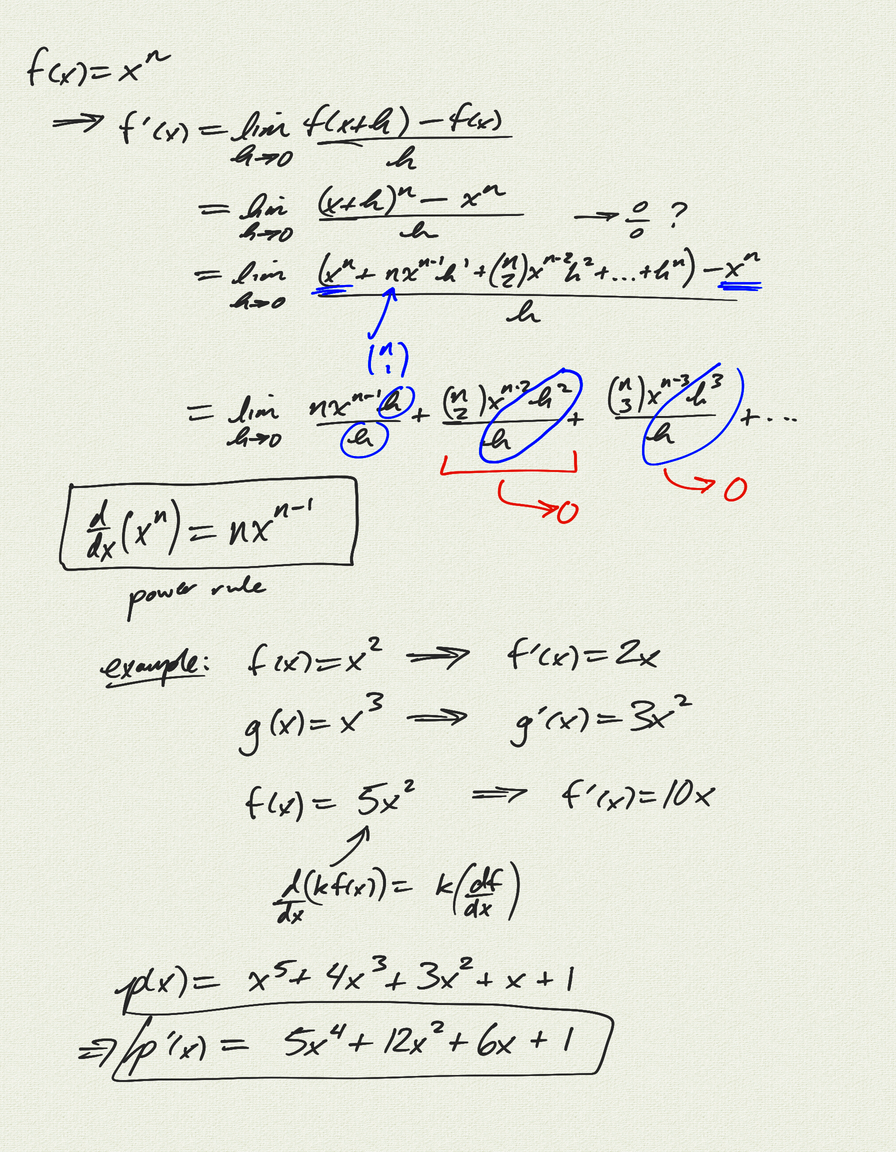 f(x) = xⁿ
⟹ f'(x) = lim h→0 (f(x+h) − f(x))/h
= lim h→0 ((x+h)ⁿ − xⁿ)/h → 0/0 ?
= lim h→0 ((xⁿ + nxⁿ⁻¹h¹ + (n 2)xⁿ⁻²h² + ... + hⁿ) − xⁿ)/h
(n 1)
= lim h→0 nxⁿ⁻¹h/h + (n 2)xⁿ⁻²h²/h + (n 3)xⁿ⁻³h³/h + ...
→ 0 → 0
d/dx (xⁿ) = nxⁿ⁻¹
power rule
example: f(x) = x² ⟹ f'(x) = 2x
g(x) = x³ ⟹ g'(x) = 3x²
f(x) = 5x² ⟹ f'(x) = 10x
d/dx (kf(x)) = k(df/dx)
p(x) = x⁵ + 4x³ + 3x² + x + 1
⟹ p'(x) = 5x⁴ + 12x² + 6x + 1